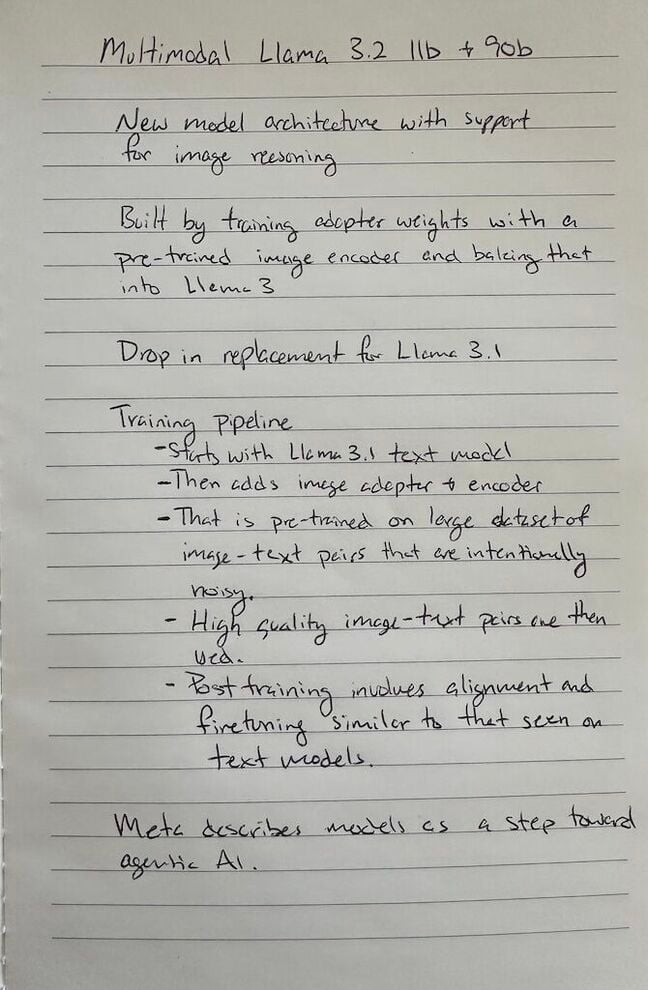 Multimodal Llama 3.2 11b + 90b
New model architecture with support
for image reasoning
Built by training adapter weights with a
pre-trained image encoder and baking that
into Llama 3
Drop in replacement for Llama 3.1
Training pipeline
- Starts with Llama 3.1 text model
- Then adds image adapter + encoder
- That is pre-trained on large dataset of
image-text pairs that are intentionally
noisy.
- High quality image-text pairs are then
used.
- Post training involves alignment and
finetuning similar to that seen on
text models.
Meta describes models as a step toward
agentic AI.